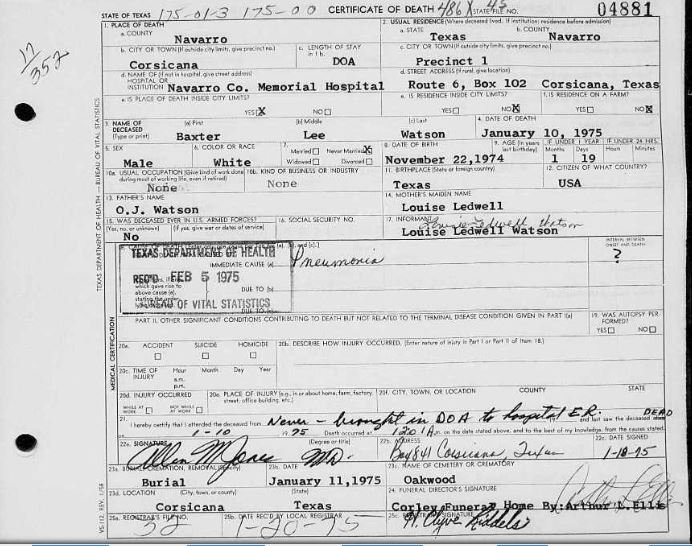 STATE OF TEXAS 175-01-3 175-00 CERTIFICATE OF DEATH 486X STATE FILE NO. 04881
1. PLACE OF DEATH 2. USUAL RESIDENCE (Where deceased lived. If institution: residence before admission)
a. COUNTY Navarro a. STATE Texas b. COUNTY Navarro
b. CITY OR TOWN (If outside city limits, give precinct no.) c. LENGTH OF STAY in 1 b. c. CITY OR TOWN (If outside city limits, give precinct no.)
Corsicana DOA Precinct 1
d. NAME OF (If not in hospital, give street address) HOSPITAL OR INSTITUTION Navarro Co. Memorial Hospital d. STREET ADDRESS (If rural, give location) Route 6, Box 102 Corsicana, Texas
e. IS PLACE OF DEATH INSIDE CITY LIMITS? YES X NO e. IS RESIDENCE INSIDE CITY LIMITS? YES NO X f. IS RESIDENCE ON A FARM? YES NO X
3. NAME OF DECEASED (Type or print) (a) First (b) Middle (c) Last 4. DATE OF DEATH
Baxter Lee Watson January 10, 1975
5. SEX 6. COLOR OR RACE 7. Married Never Married X Widowed Divorced 8. DATE OF BIRTH 9. AGE (In years last birthday) IF UNDER 1 YEAR Months Days IF UNDER 24 HRS. Hours Minutes
Male White November 22,1974 1 19
10a. USUAL OCCUPATION (Give kind of work done during most of working life, even if retired) 10b. KIND OF BUSINESS OR INDUSTRY 11. BIRTHPLACE (State or foreign country) 12. CITIZEN OF WHAT COUNTRY?
None None Texas USA
13. FATHER'S NAME 14. MOTHER'S MAIDEN NAME
O.J. Watson Louise Ledwell
15. WAS DECEASED EVER IN U.S. ARMED FORCES? (Yes, no, or unknown) (If yes, give war or dates of service) 16. SOCIAL SECURITY NO. 17. INFORMANT
No Louise Ledwell Watson
TEXAS DEPARTMENT OF HEALTH
IMMEDIATE CAUSE (a) Pneumonia ?
REC'D FEB 5 1975
DUE TO (b)
BUREAU OF VITAL STATISTICS
DUE TO (c)
INTERVAL BETWEEN ONSET AND DEATH
PART II. OTHER SIGNIFICANT CONDITIONS CONTRIBUTING TO DEATH BUT NOT RELATED TO THE TERMINAL DISEASE CONDITION GIVEN IN PART I(a) 19. WAS AUTOPSY PERFORMED? YES NO
20a. ACCIDENT SUICIDE HOMICIDE 20b. DESCRIBE HOW INJURY OCCURRED. (Enter nature of injury in Part I or Part II of Item 18.)
20c. TIME OF INJURY Hour Month Day Year a.m. p.m.
20d. INJURY OCCURRED WHILE AT WORK NOT WHILE AT WORK 20e. PLACE OF INJURY (e.g., in or about home, farm, factory, street, office building, etc.) 20f. CITY, TOWN, OR LOCATION COUNTY STATE
21. I hereby certify that I attended the deceased from Never - brought in DOA to hospital ER. and last saw the deceased DEAD
1-10 1975 Death occurred at 120 A m. on the date stated above, and to the best of my knowledge, from the causes stated.
22a. SIGNATURE (Degree or title) 22b. ADDRESS 22c. DATE SIGNED
Allen M Jones MD. Box 841 Corsicana, Texas 1-18-75
23a. BURIAL, CREMATION, REMOVAL 23b. DATE 23c. NAME OF CEMETERY OR CREMATORY
Burial January 11,1975 Oakwood
23d. LOCATION (City, town, or county) (State) 24. FUNERAL DIRECTOR'S SIGNATURE
Corsicana Texas Corley Funeral Home By:Arthur L.Ellis
25a. REGISTRAR'S FILE NO. 32 25b. DATE REC'D BY LOCAL REGISTRAR 1-20-75
17/352
TEXAS DEPARTMENT OF HEALTH — BUREAU OF VITAL STATISTICS
MEDICAL CERTIFICATION
VS-112, REV. 1/58